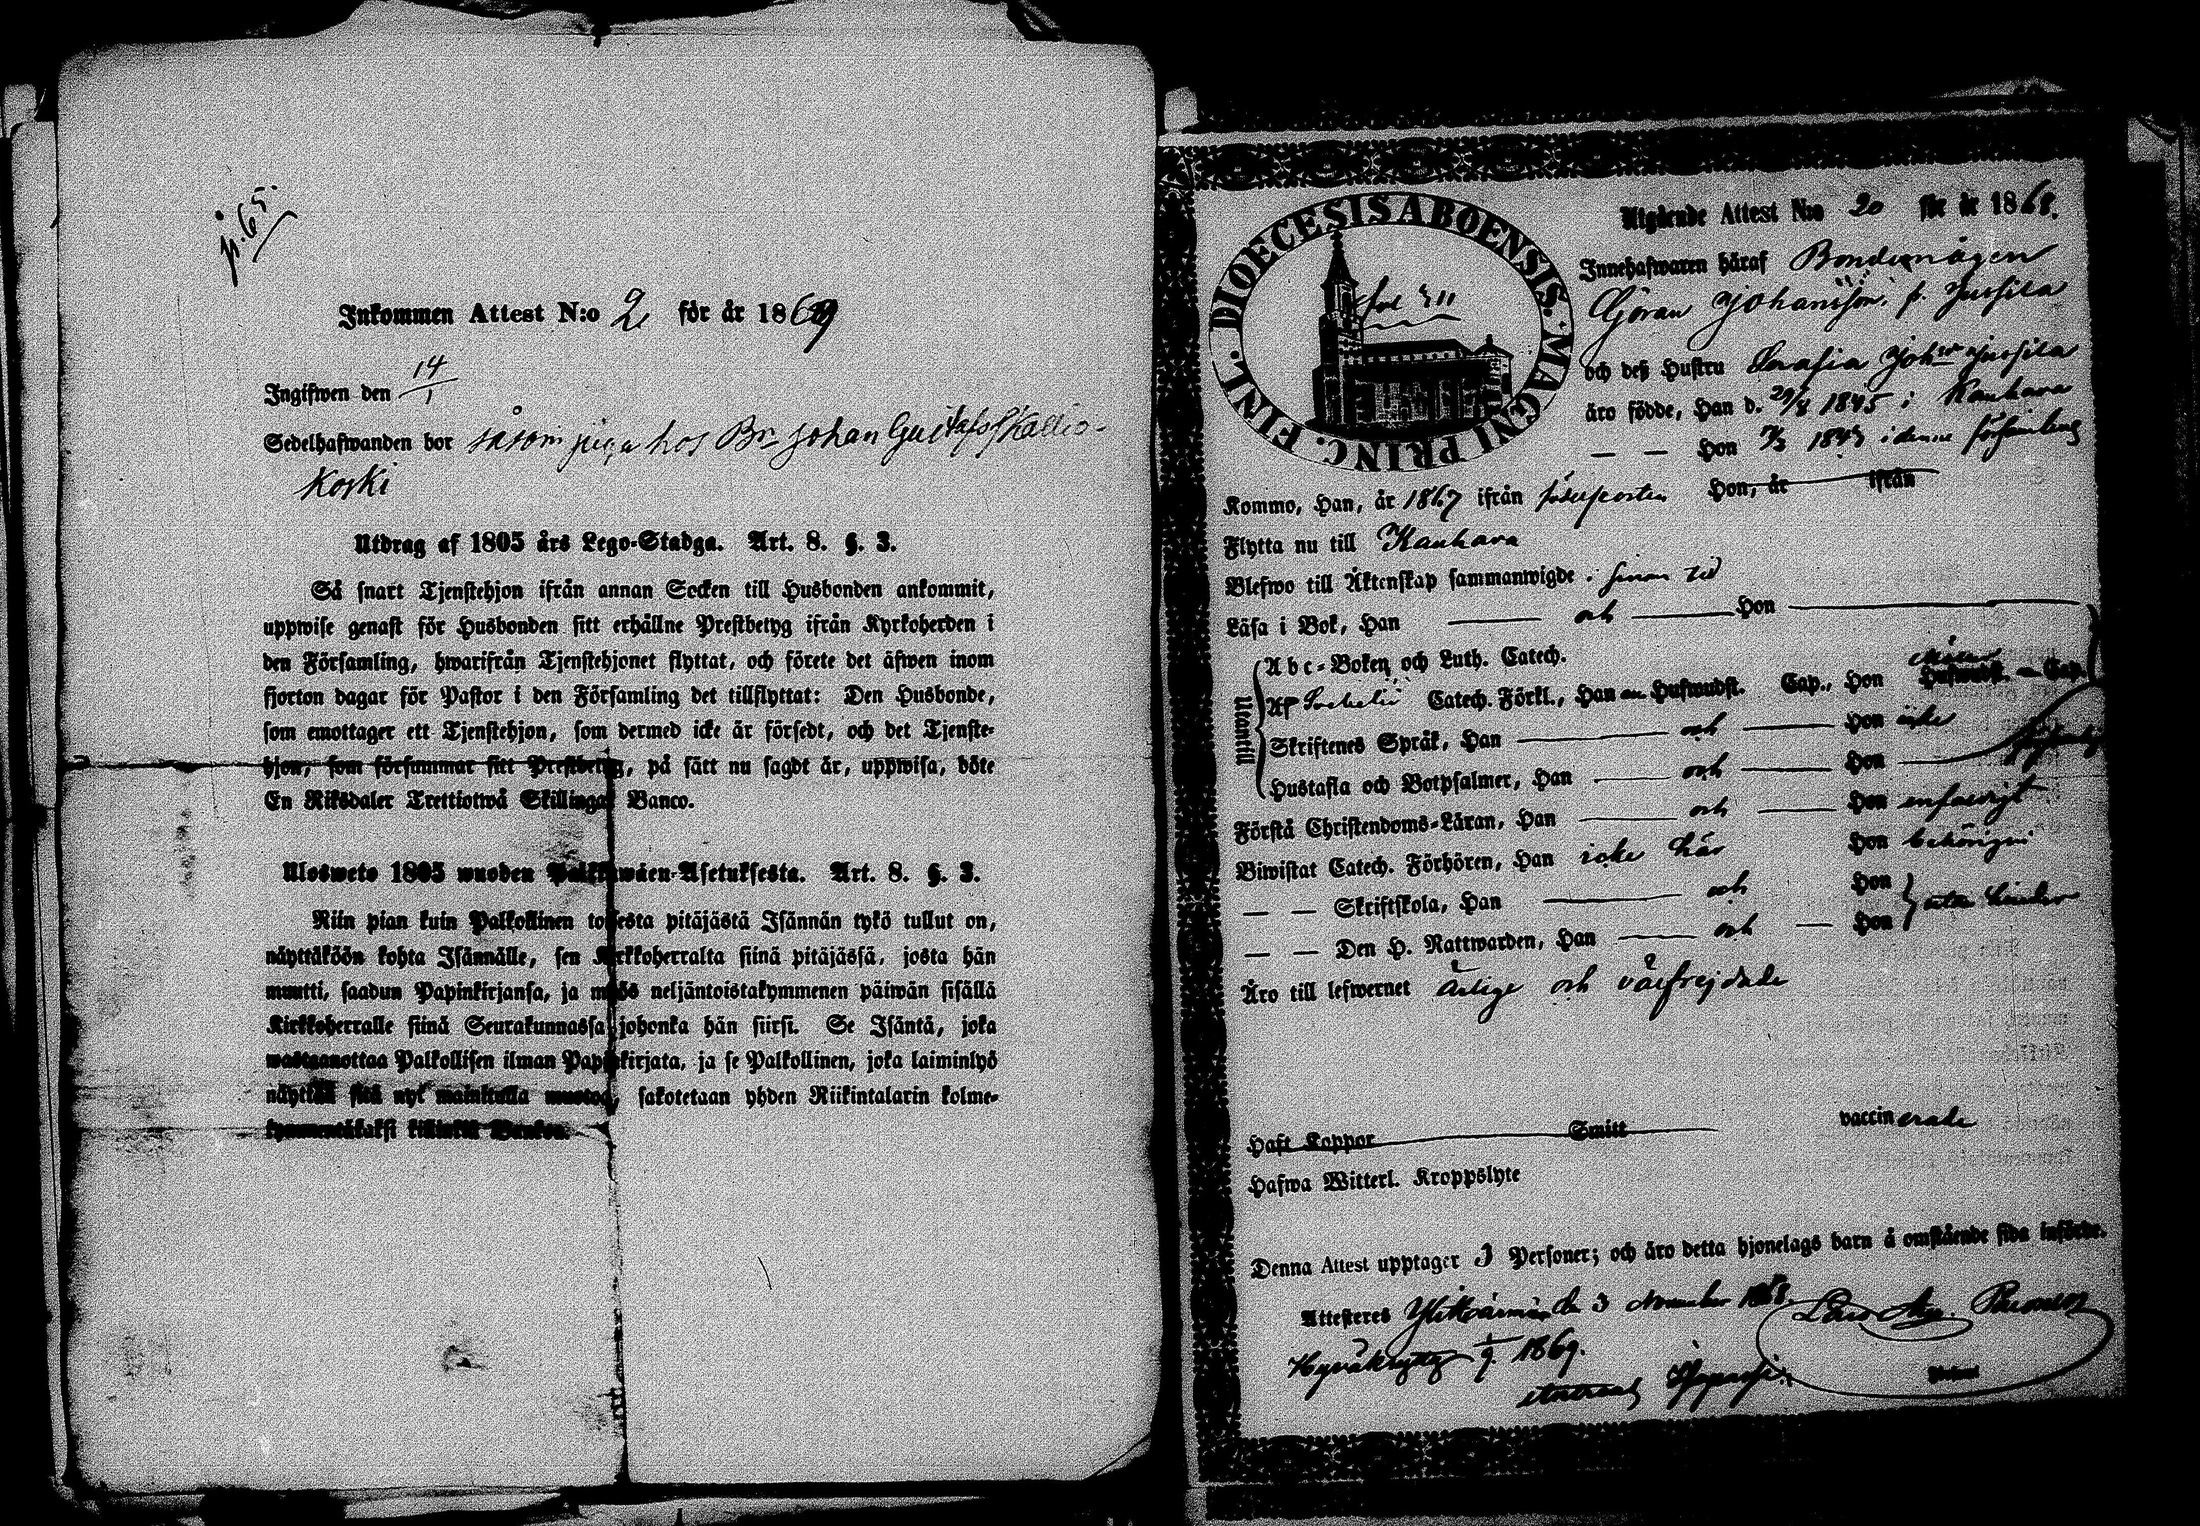 p. 65.
Inkommen Attest N:o 2 för år 1869
Ingifwen den 14/1
Sedelhafwanden bor såsom piga hos Bn Johan Gustafss Kallio-
Koski
Utdrag af 1805 års Lego-Stadga. Art. 8. §. 3.
Så snart Tjenstehjon ifrån annan Socken till Husbonden ankommit,
uppwise genast för Husbonden sitt erhållne Prestbetyg ifrån Kyrkoherden i
den Församling, hwarifrån Tjenstehjonet flyttat, och förete det äfwen inom
fjorton dagar för Pastor i den Församling det tillflyttat: Den Husbonde,
som emottager ett Tjenstehjon, som dermed icke är försedt, och det Tjenste-
hjon, som försummar sitt Prestbetyg, på sätt nu sagdt är, uppwisa, böte
En Riksdaler Trettiotwå Skillingar Banco.
Ulosweto 1805 wuoden Palkkawäen-Asetuksesta. Art. 8. §. 3.
Niin pian kuin Palkollinen toisesta pitäjästä Isännän tykö tullut on,
näyttäköön kohta Isännälle, sen Kirkkoherralta siinä pitäjässä, josta hän
muutti, saadun Papinkirjansa, ja myös neljäntoistakymmenen päiwän sisällä
Kirkkoherralle siinä Seurakunnassa johonka hän siirsi. Se Isäntä, joka
wastaanottaa Palkollisen ilman Papinkirjata, ja se Palkollinen, joka laiminlyö
näyttää sitä nyt mainitulla muotoa, sakotetaan yhden Riikintalarin kolme-
kymmentäkaksi killinkiä Bankoa.
DIOECESIS ABOENSIS. MAGNI PRINC. FINL.
fol 511
Utgående Attest N:o 20 för år 1868.
Innehafwaren häraf Bondemågen
Göran Johansson f. Jussila
och deß Hustru Serafia Johsdr Jussila
äro födde, Han d. 29/8 1845 i Kauhava
— — Hon 1843 i denne församling
Kommo, Han, år 1867 ifrån födelseorten Hon, år ifrån
Flytta nu till Kauhava
Blefwo till Äktenskap sammanwigde i sinom tid
Läsa i Bok, Han — och — Hon —
Utantill
Abc-Boken och Luth. Catech.
Af Svebelii Catech. Förkl., Han Hufwudst. Cap., Hon Hufwudst. Cap.
Skriftenes Språk, Han — och — Hon icke
Hustafla och Botpsalmer, Han — och — Hon —
Förstå Christendoms-Läran, Han — och — Hon enfaldigt
Biwistat Catech. Förhören, Han icke här Hon behörigen
— — Skriftskola, Han — och Hon
— — Den H. Nattwarden, Han — och — Hon
Äro till lefwernet ärlige och välfrejdade
Haft Koppor Smitt vaccinerade
Hafwa Witterl. Kroppslyte
Denna Attest upptager 3 Personer; och äro detta hjonelags barn å omstående sida införde.
Attesteras Ylikärmä den 3 November 1868.
Hyväksytty 1869.